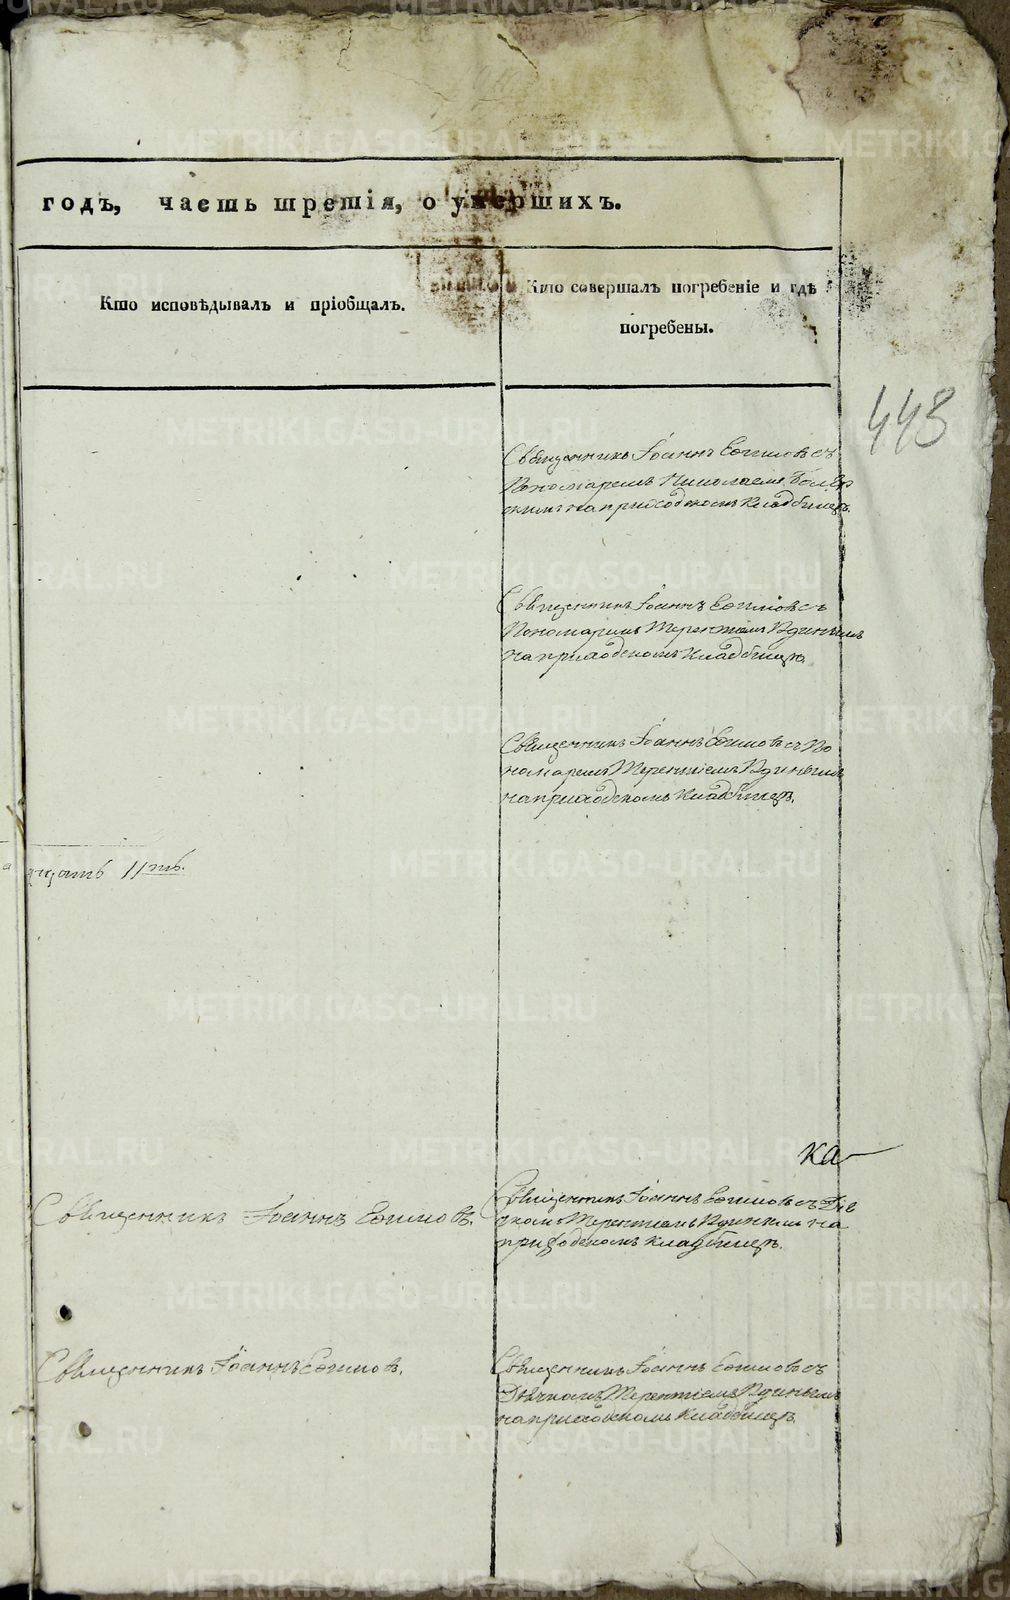 годъ, часть третія, о умершихъ.
Кто исповѣдывалъ и пріобщалъ.
Кто совершалъ погребеніе и гдѣ
погребены.
443
Священникъ Іоаннъ Ефимовъ съ
Пономаремъ Николаемъ
на приходскомъ кладбищѣ.
Священникъ Іоаннъ Ефимовъ съ
Пономаремъ Терентіемъ Удинымъ
на приходскомъ кладбищѣ.
Священникъ Іоаннъ Ефимовъ съ По
номаремъ Терентіемъ Удинымъ
на приходскомъ кладбищѣ.
11ть.
ка
Священникъ Іоаннъ Ефимовъ.
Священникъ Іоаннъ Ефимовъ съ Дья
чкомъ Терентіемъ Удинымъ на
приходскомъ кладбищѣ.
Священникъ Іоаннъ Ефимовъ.
Священникъ Іоаннъ Ефимовъ съ
Дьячкомъ Терентіемъ Удинымъ
на приходскомъ кладбищѣ.
METRIKI.GASO-URAL.RU